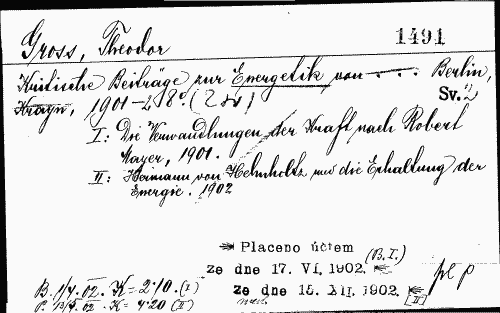 Gross, Theodor
1491
Kritische Beiträge zur Energetik von . . . Berlin,
Krayn, 1901-2 8º (2 sv)
Sv. 2
I: Die Verwandlungen der Kraft nach Robert
Mayer, 1901.
II: Hermann von Helmholtz und die Erhaltung der
Energie. 1902
Placeno účtem
(B. I.)
ze dne 17. VI. 1902.
ze dne 15. XII. 1902.
[II]
B. 1/4. 02. K = 2·10. (I)
02. K = 4·20 (II)